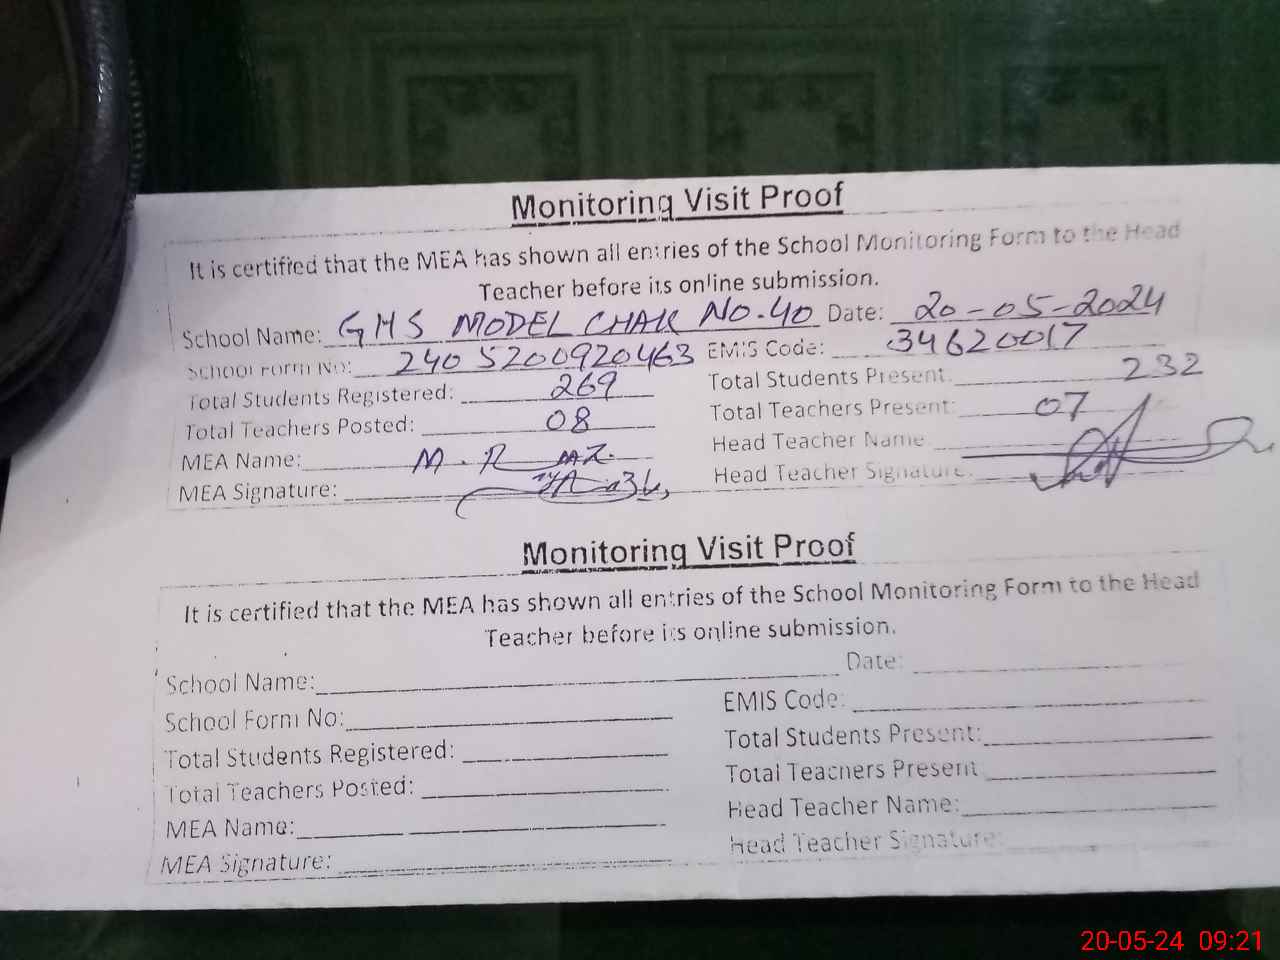 Monitoring Visit Proof
It is certified that the MEA has shown all entries of the School Monitoring Form to the Head
Teacher before its online submission.
School Name: GHS MODEL CHAK NO.40 Date: 20-05-2024
School Form No: 2405200920463 EMIS Code: 34620017
Total Students Registered: 269 Total Students Present: 232
Total Teachers Posted: 08 Total Teachers Present: 07
MEA Name: M. Head Teacher Name
MEA Signature: Head Teacher Signature:
Monitoring Visit Proof
It is certified that the MEA has shown all entries of the School Monitoring Form to the Head
Teacher before its online submission.
School Name: Date:
School Form No: EMIS Code:
Total Students Registered: Total Students Present:
Total Teachers Posted: Total Teachers Present
MEA Name: Head Teacher Name:
MEA Signature: Head Teacher Signature:
20-05-24 09:21